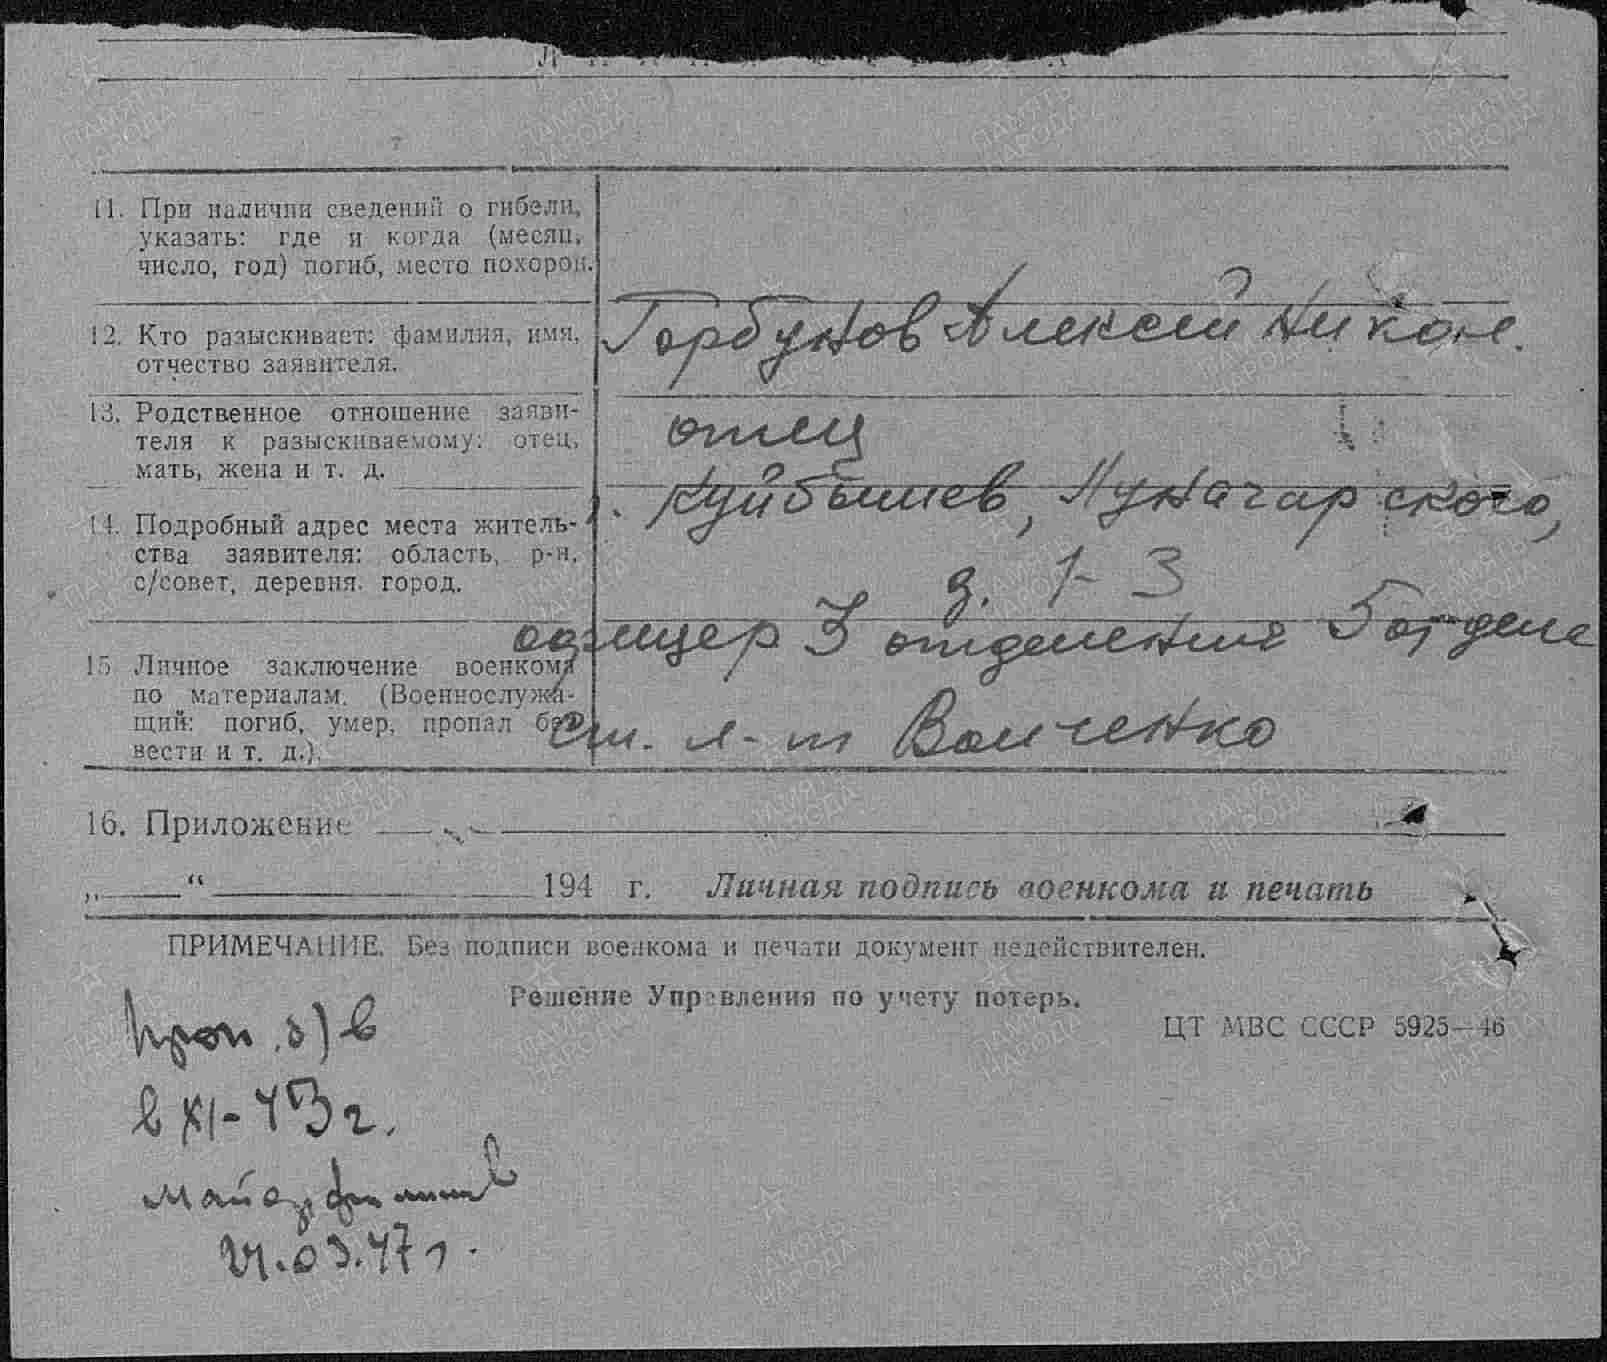 11. При наличии сведений о гибели,
указать: где и когда (месяц,
число, год) погиб, место похорон.
12. Кто разыскивает: фамилия, имя,
отчество заявителя.
Горбунов Алексей Никон.
13. Родственное отношение заяви-
теля к разыскиваемому: отец,
мать, жена и т. д.
отец
14. Подробный адрес места житель-
ства заявителя: область, р-н,
с/совет, деревня, город.
г. Куйбышев, Луначарского,
д. 1-3
15 Личное заключение военкома
по материалам. (Военнослужа-
щий: погиб, умер, пропал без
вести и т. д.).
офицер 3 отделения 5 отдела
Ст. л-т Волченко
16. Приложение
„ “ 194 г. Личная подпись военкома и печать
ПРИМЕЧАНИЕ. Без подписи военкома и печати документ недействителен.
Решение Управления по учету потерь.
ЦТ МВС СССР 5925—46
Проп. б) в
в XI-43 г.
майор
03.47 г.
ПАМЯТЬ
НАРОДА